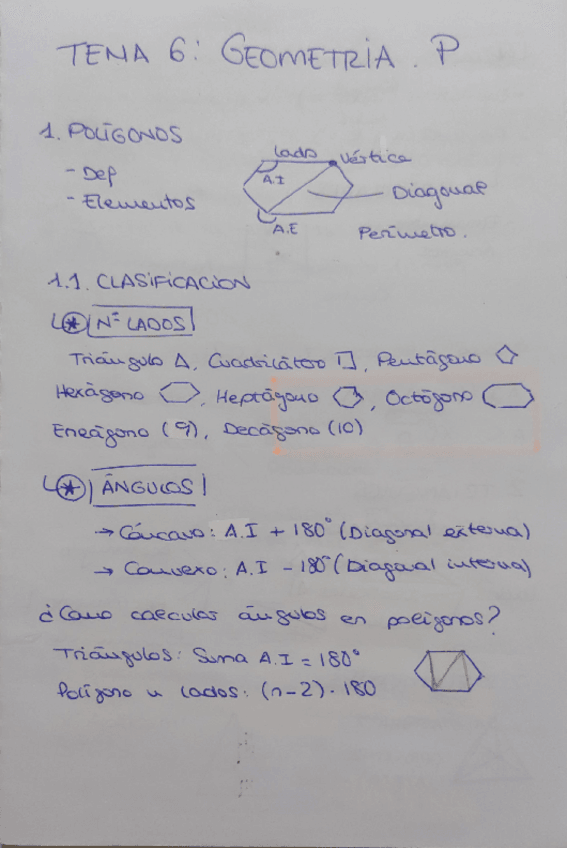 TEMA 6: GEOMETRÍA. P
1. POLÍGONOS
- Def
- Elementos
lado
Vértice
A.I
Diagonal
A.E
Perímetro.
1.1. CLASIFICACIÓN
* Nº LADOS
Triángulo, Cuadrilátero, Pentágono
Hexágono, Heptágono, Octógono
Eneágono (9), Decágono (10)
* ÁNGULOS
→ Cóncavo: A.I + 180° (Diagonal externa)
→ Convexo: A.I - 180° (Diagonal interna)
¿Cómo calcular ángulos en polígonos?
Triángulos: Suma A.I = 180°
Polígono n lados: (n-2) · 180